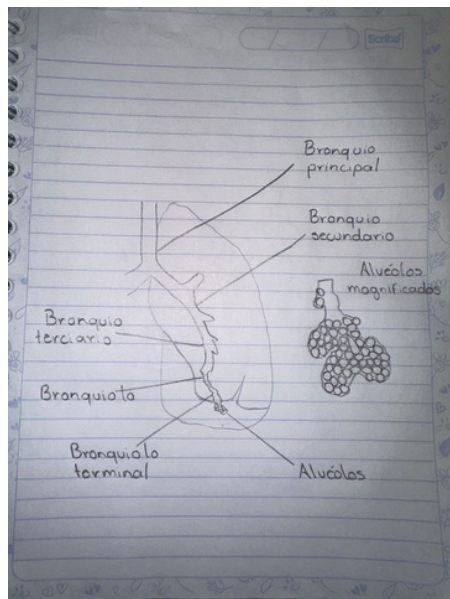 Scribe
Bronquio
principal
Bronquio
secundario
Alvéolos
magnificados
Bronquio
terciario
Bronquiolo
Bronquiolo
terminal
Alvéolos